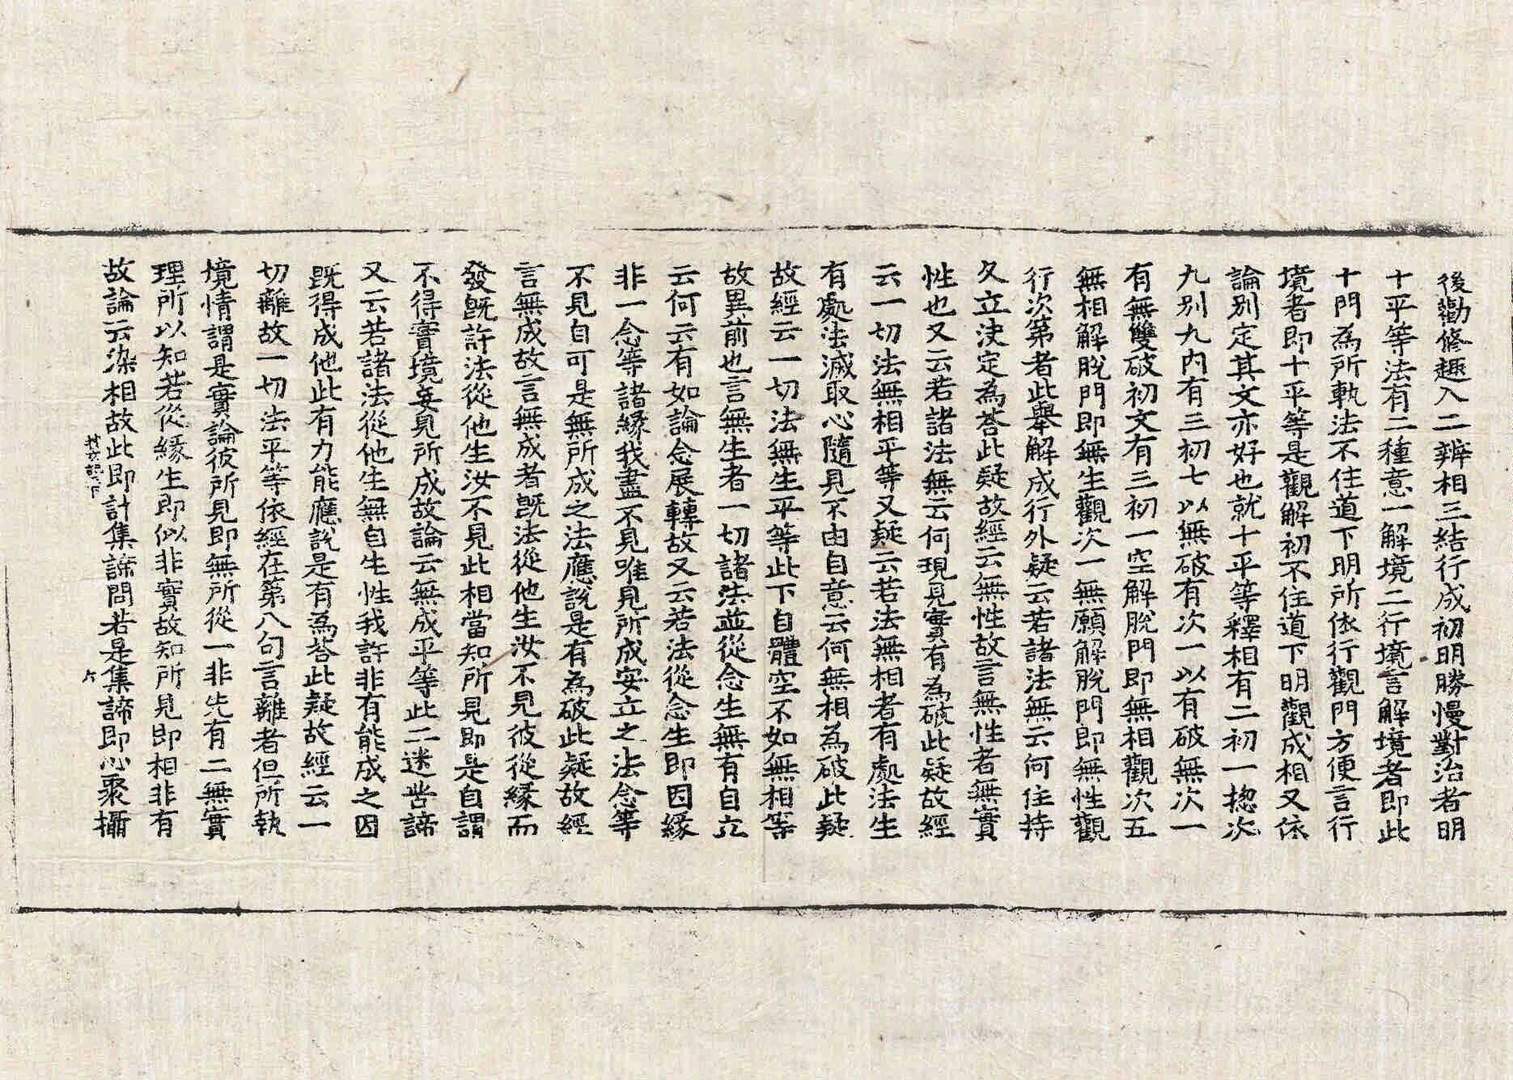 後勸修趣入二辨相三結行成初明勝慢對治者明
十平等法有二種意一解境二行境言解境者即此
十門為所軌法不住道下明所依行觀門方便言行
境者即十平等是觀解初不住道下明觀成相又依
論別定其文亦好也就十平等釋相有二初一揔次
九別九內有三初七以無破有次一以有破無次一
有無雙破初文有三初一空解脫門即無相觀次五
無相解脫門即無生觀次一無願解脫門即無性觀
行次第者此舉解成行外疑云若諸法無云何住持
久立決定為荅此疑故經云無性故言無性者無實
性也又云若諸法無云何現見實有為破此疑故經
云一切法無相平等又疑云若法無相者有處法生
有處法滅取心隨見不由自意云何無相為破此疑
故經云一切法無生平等此下自體空不如無相等
故異前也言無生者一切諸法並從念生無有自立
云何云有如論念展轉故又云若法從念生即因緣
非一念等諸緣我盡不見唯見所成安立之法念等
不見自可是無所成之法應說是有為破此疑故經
言無成故言無成者既法從他生汝不見彼從緣而
發既許法從他生汝不見此相當知所見即是自謂
不得實境妄見所成故論云無成平等此二迷苦諦
又云若諸法從他生無自生性我許非有能成之因
既得成他此有力能應說是有為荅此疑故經云一
切離故一切法平等依經在第八句言離者但所執
境情謂是實論彼所見即無所從一非先有二無實
理所以知若從緣生即似非實故知所見即相非有
故論云染相故此即計集諦問若是集諦即心聚攝
六